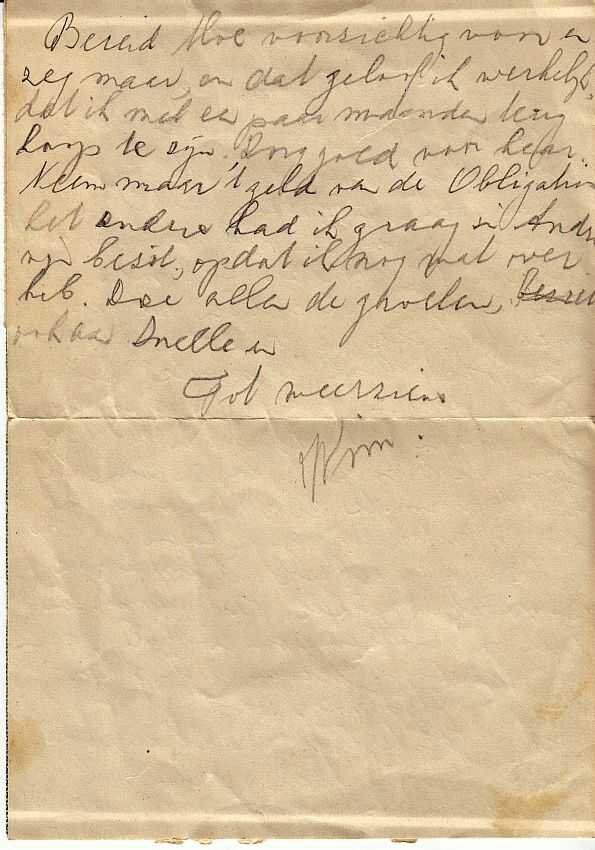 Bereid Moe voorzichtig voor en
zeg maar, en dat geloof ik werkelijk,
dat ik met een paar maanden terug
hoop te zijn. Zorg goed voor haar.
Neem maar 't geld van de Obligation
het andere had ik graag in
bezit, opdat ik nog wat over
heb. Doe allen de groeten,
ook aan Snelle en
Tot weerziens
Wim.